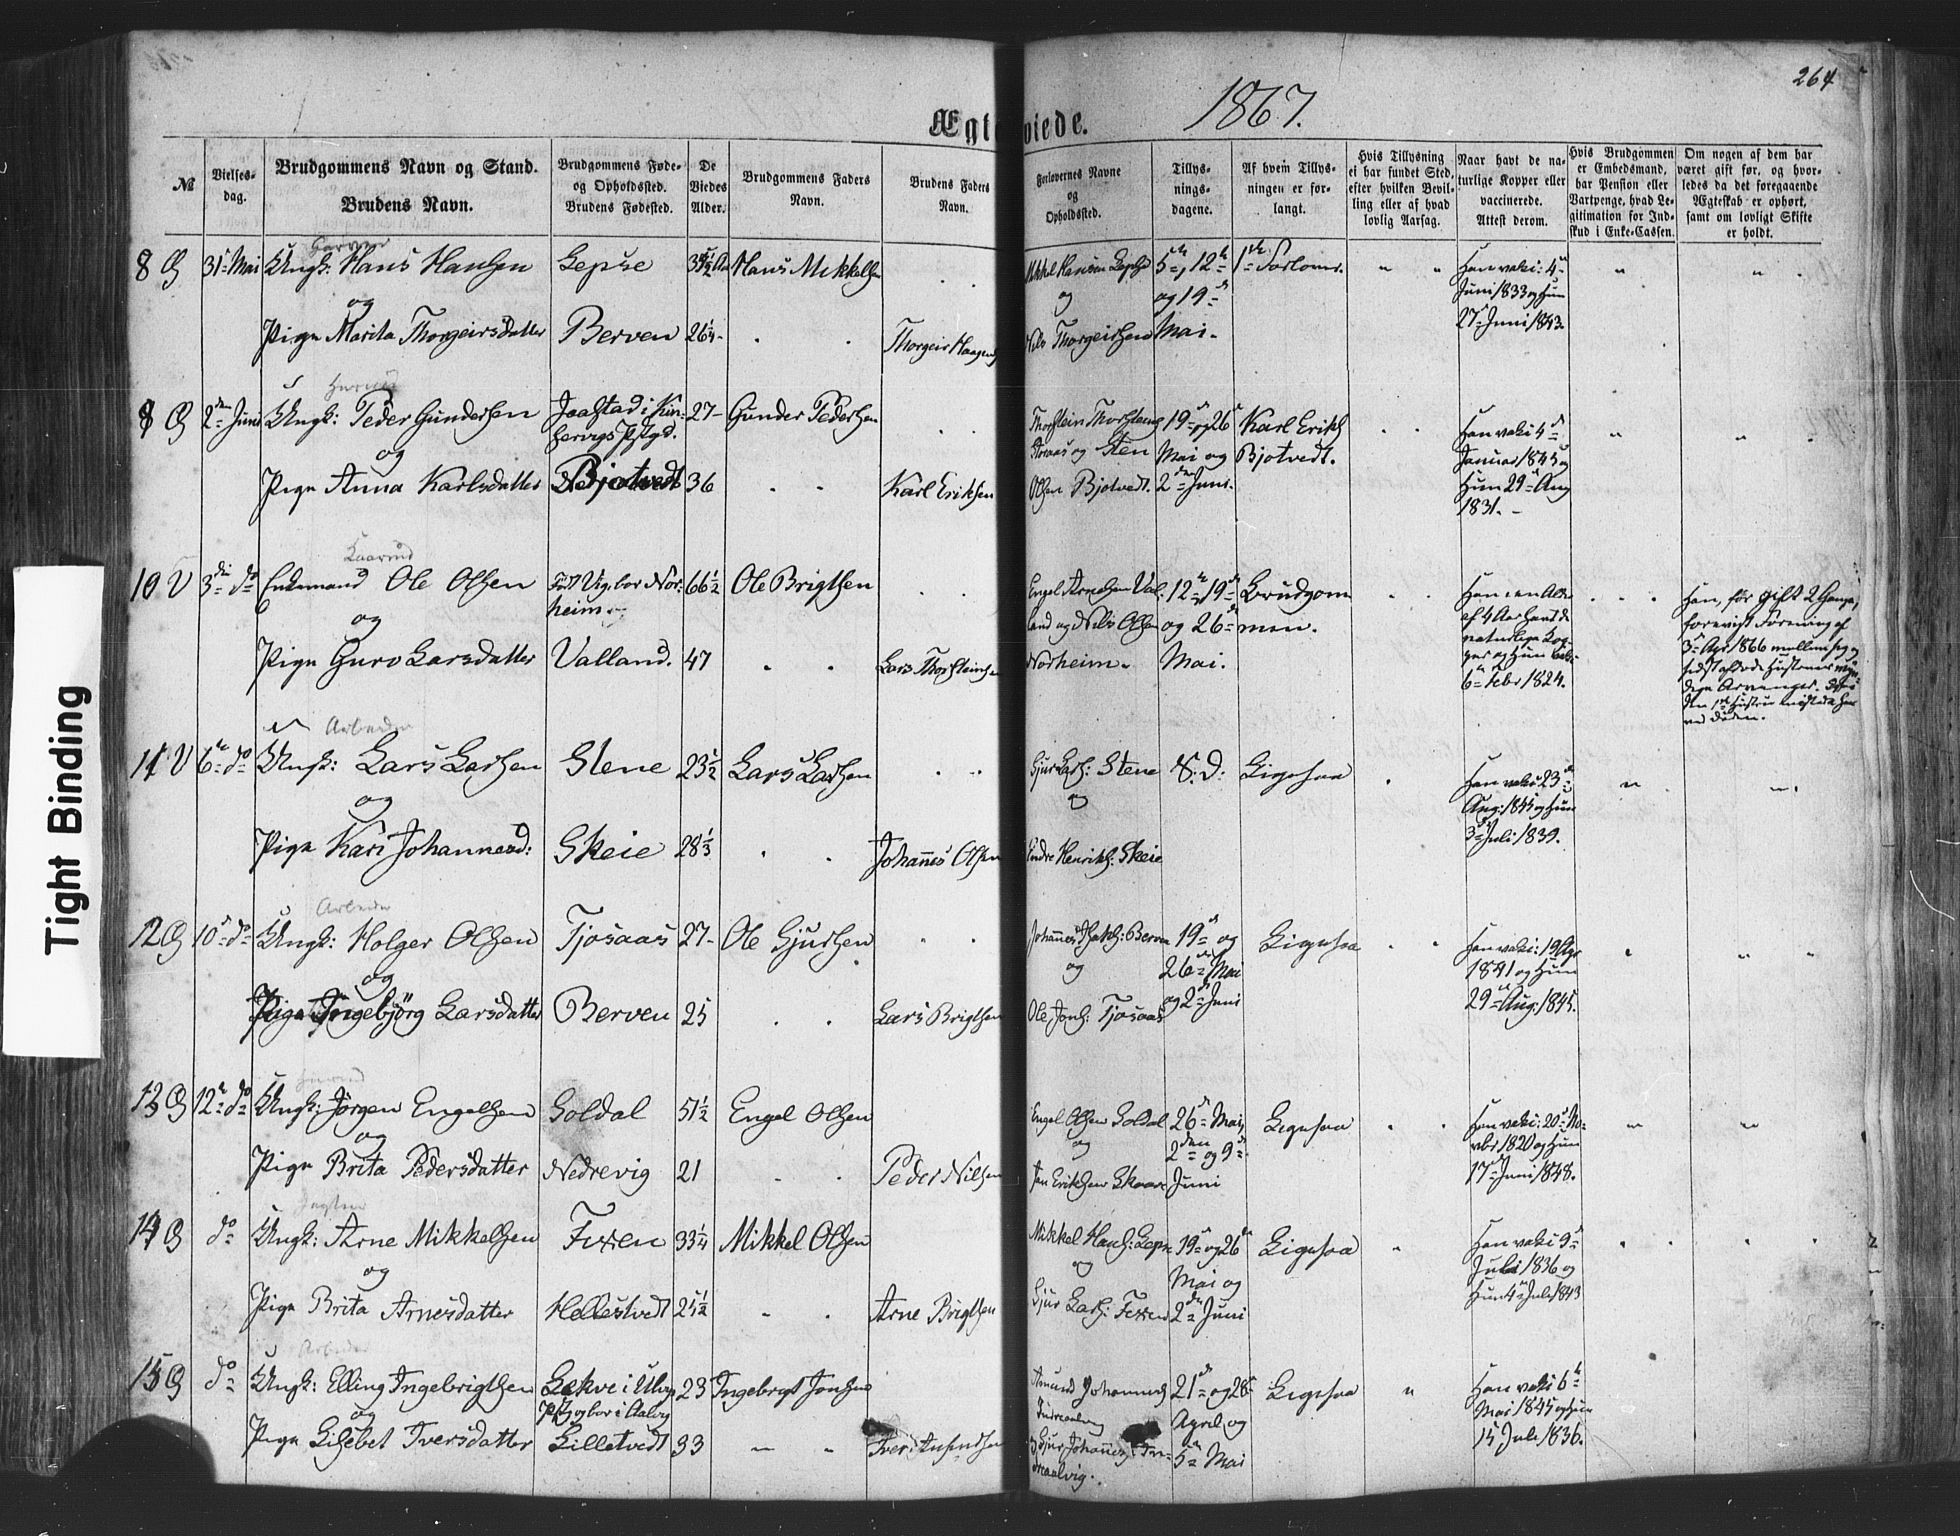 264
Ægteviede.
1867.
№
Vielses-
dag.
Brudgommens Navn og Stand.
Brudens Navn.
Brudgommens Føde-
og Opholdssted.
Brudens Fødested.
De
Viedes
Alder.
Brudgommens Faders
Navn.
Brudens Faders
Navn.
Forlovernes Navne
og
Opholdssted.
Tillys-
nings-
dagene.
Af hvem Tillys-
ningen er for-
langt.
Hvis Tillysning
ei har fundet Sted,
efter hvilken Bevil-
ling eller af hvad
lovlig Aarsag.
Naar havt de na-
turlige Kopper eller
vaccinerede.
Attest derom.
Hvis Brudgommen
er Embedsmand,
har Pension eller
Vartpenge, hvad Le-
gitimation for Ind-
skud i Enke-Cassen.
Om nogen af dem har
været gift før, og hvor-
ledes da det foregaaende
Ægteskab er ophørt,
samt om lovligt Skifte
er holdt.
8 31 Mai Ungk: Hans Hansen Lepse Hans Mikkelsen Mikkel Hansen Lepse 5te, 12te 1ste Forlover. Han vaki: 4de
og og og 19de Juni 1833 og Hun
Pige Marita Thorgeirsdatter Berven 26¼ Thorgeir Haagens Nils Thorgeirsen Mai. 27 Juni 1843.
2den Juni Ungk: Peder Gundersen Jaastad i Kin- 27 Gunder Pedersen Thorstein Thorsteins 19de og 26 Karl Eriks Han vaki 4de
servigs Pstgd. og Sten Mai og Bjotvedt. Januar 1845 og
og
Pige Anna Karlsdatter Bjotvedt 36 Karl Eriksen Olsen Bjotvedt. 2den Juni. Hun 29 Aug
1831.
10 V 3die do Enkemand Ole Olsen Født Vig, bor Nor- 66½ Ole Brigtsen Engel Arnesen Val- 12te, 19de Brudgom- Han i en Alder Han, før gift 2 Gange,
heim. land og Nils Olsen og 26de men. af 4 Aar havt de
og naturlige Kop-
Pige Guro Larsdatter Valland. 47 Lars Thorsteinsen Norheim. Mai. per og Hun vaki: 3 Apr 1866 mellem sig og
6te Febr 1824.
ved Døden.
Arbeider
11 V 6te do Ungk: Lars Larsen Stene 23½ Lars Larsen Sjur Lars: Stene S. D: Ligesaa Han vaki 23de
og og Aug: 1845 og Hun
Pige Kari Johannesd: Skeie 28⅓ Johannes Olsen Endre Henriks: Skeie 3die Juli 1839.
Arbeider
12 10de do Ungk: Holger Olsen Tjosaas 27 Ole Sjursen Johannes Berven 19de og Ligesaa Han vaki: 19 Apr
og og 26de Mai 1841 og Hun
Pige Ingebjörg Larsdatter Berven 25 Lars Brigtsen Ole Joh: Tjosaas og 2den Juni 29de Aug: 1845.
13 12te do Ungk: Jörgen Engelsen Soldal 51½ Engel Olsen Engel Olsen Soldal 26de Mai, Ligesaa Han vaki: 20de No-
og og 2den og 9de vbr 1820 og Hun
Pige Brita Pedersdatter Nedrevig 21 Peder Nilsen Jon Eriksen Skaare Juni 17de Juni 1848.
14 do Ungk: Arne Mikkelsen Fixen 33¼ Mikkel Olsen Mikkel Hans: Lepse 19de og 26de Ligesaa Han vaki 9de
og og Mai og Juli 1836 og
Pige Brita Arnesdatter Hellestvedt 25½ Arne Brigtsen Sjur Lars: Fixen 2den Juni Hun 4de Juli 1843
Arbeider
15 do Ungk: Elling Ingebrigtsen Lekve i Ulvig 23 Ingebrigt Jonsen Amund Johannes 21de og 28de Ligesaa Han vaki 6te
og Pstg og bor i Aalvig Indreaalvig April og Mai 1845 og Hun
Pige Lisebet Iversdatter Lilletvedt 33 Sjur Johannes: In- 5te Mai 15 Juli 1836.
dreaalvig.
Tight Binding